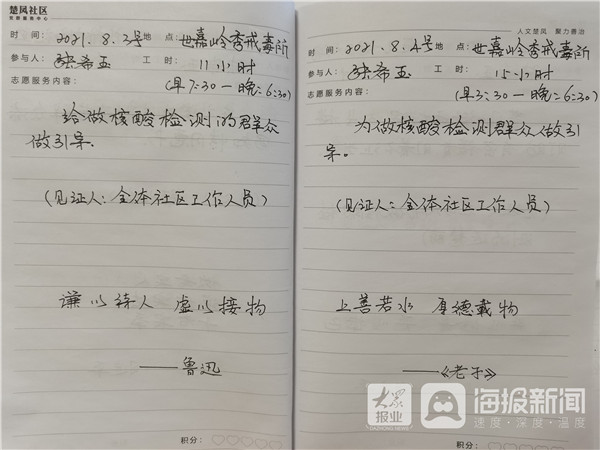 楚凤社区
党群服务中心
时 间: 2021.8.3号 地 点: 世嘉岭秀戒毒所
参与人: 张希玉 工 时: 11小时
志愿服务内容: (早7:30—晚:6:30)
给做核酸检测的群众
做引导。
(见证人:全体社区工作人员)
谦以待人 虚以接物
——鲁迅
积分:
人文楚凤 聚力善治
时 间: 2021.8.4号 地 点: 世嘉岭秀戒毒所
参与人: 张希玉 工 时: 15小时
志愿服务内容: (早3:30—晚:6:30)
为做核酸检测群众做引
导。
(见证人:全体社区工作人员)
上善若水 厚德载物
——《老子》
积分:
大众报业
DAZHONG NEWS
海报新闻
速度·深度·温度